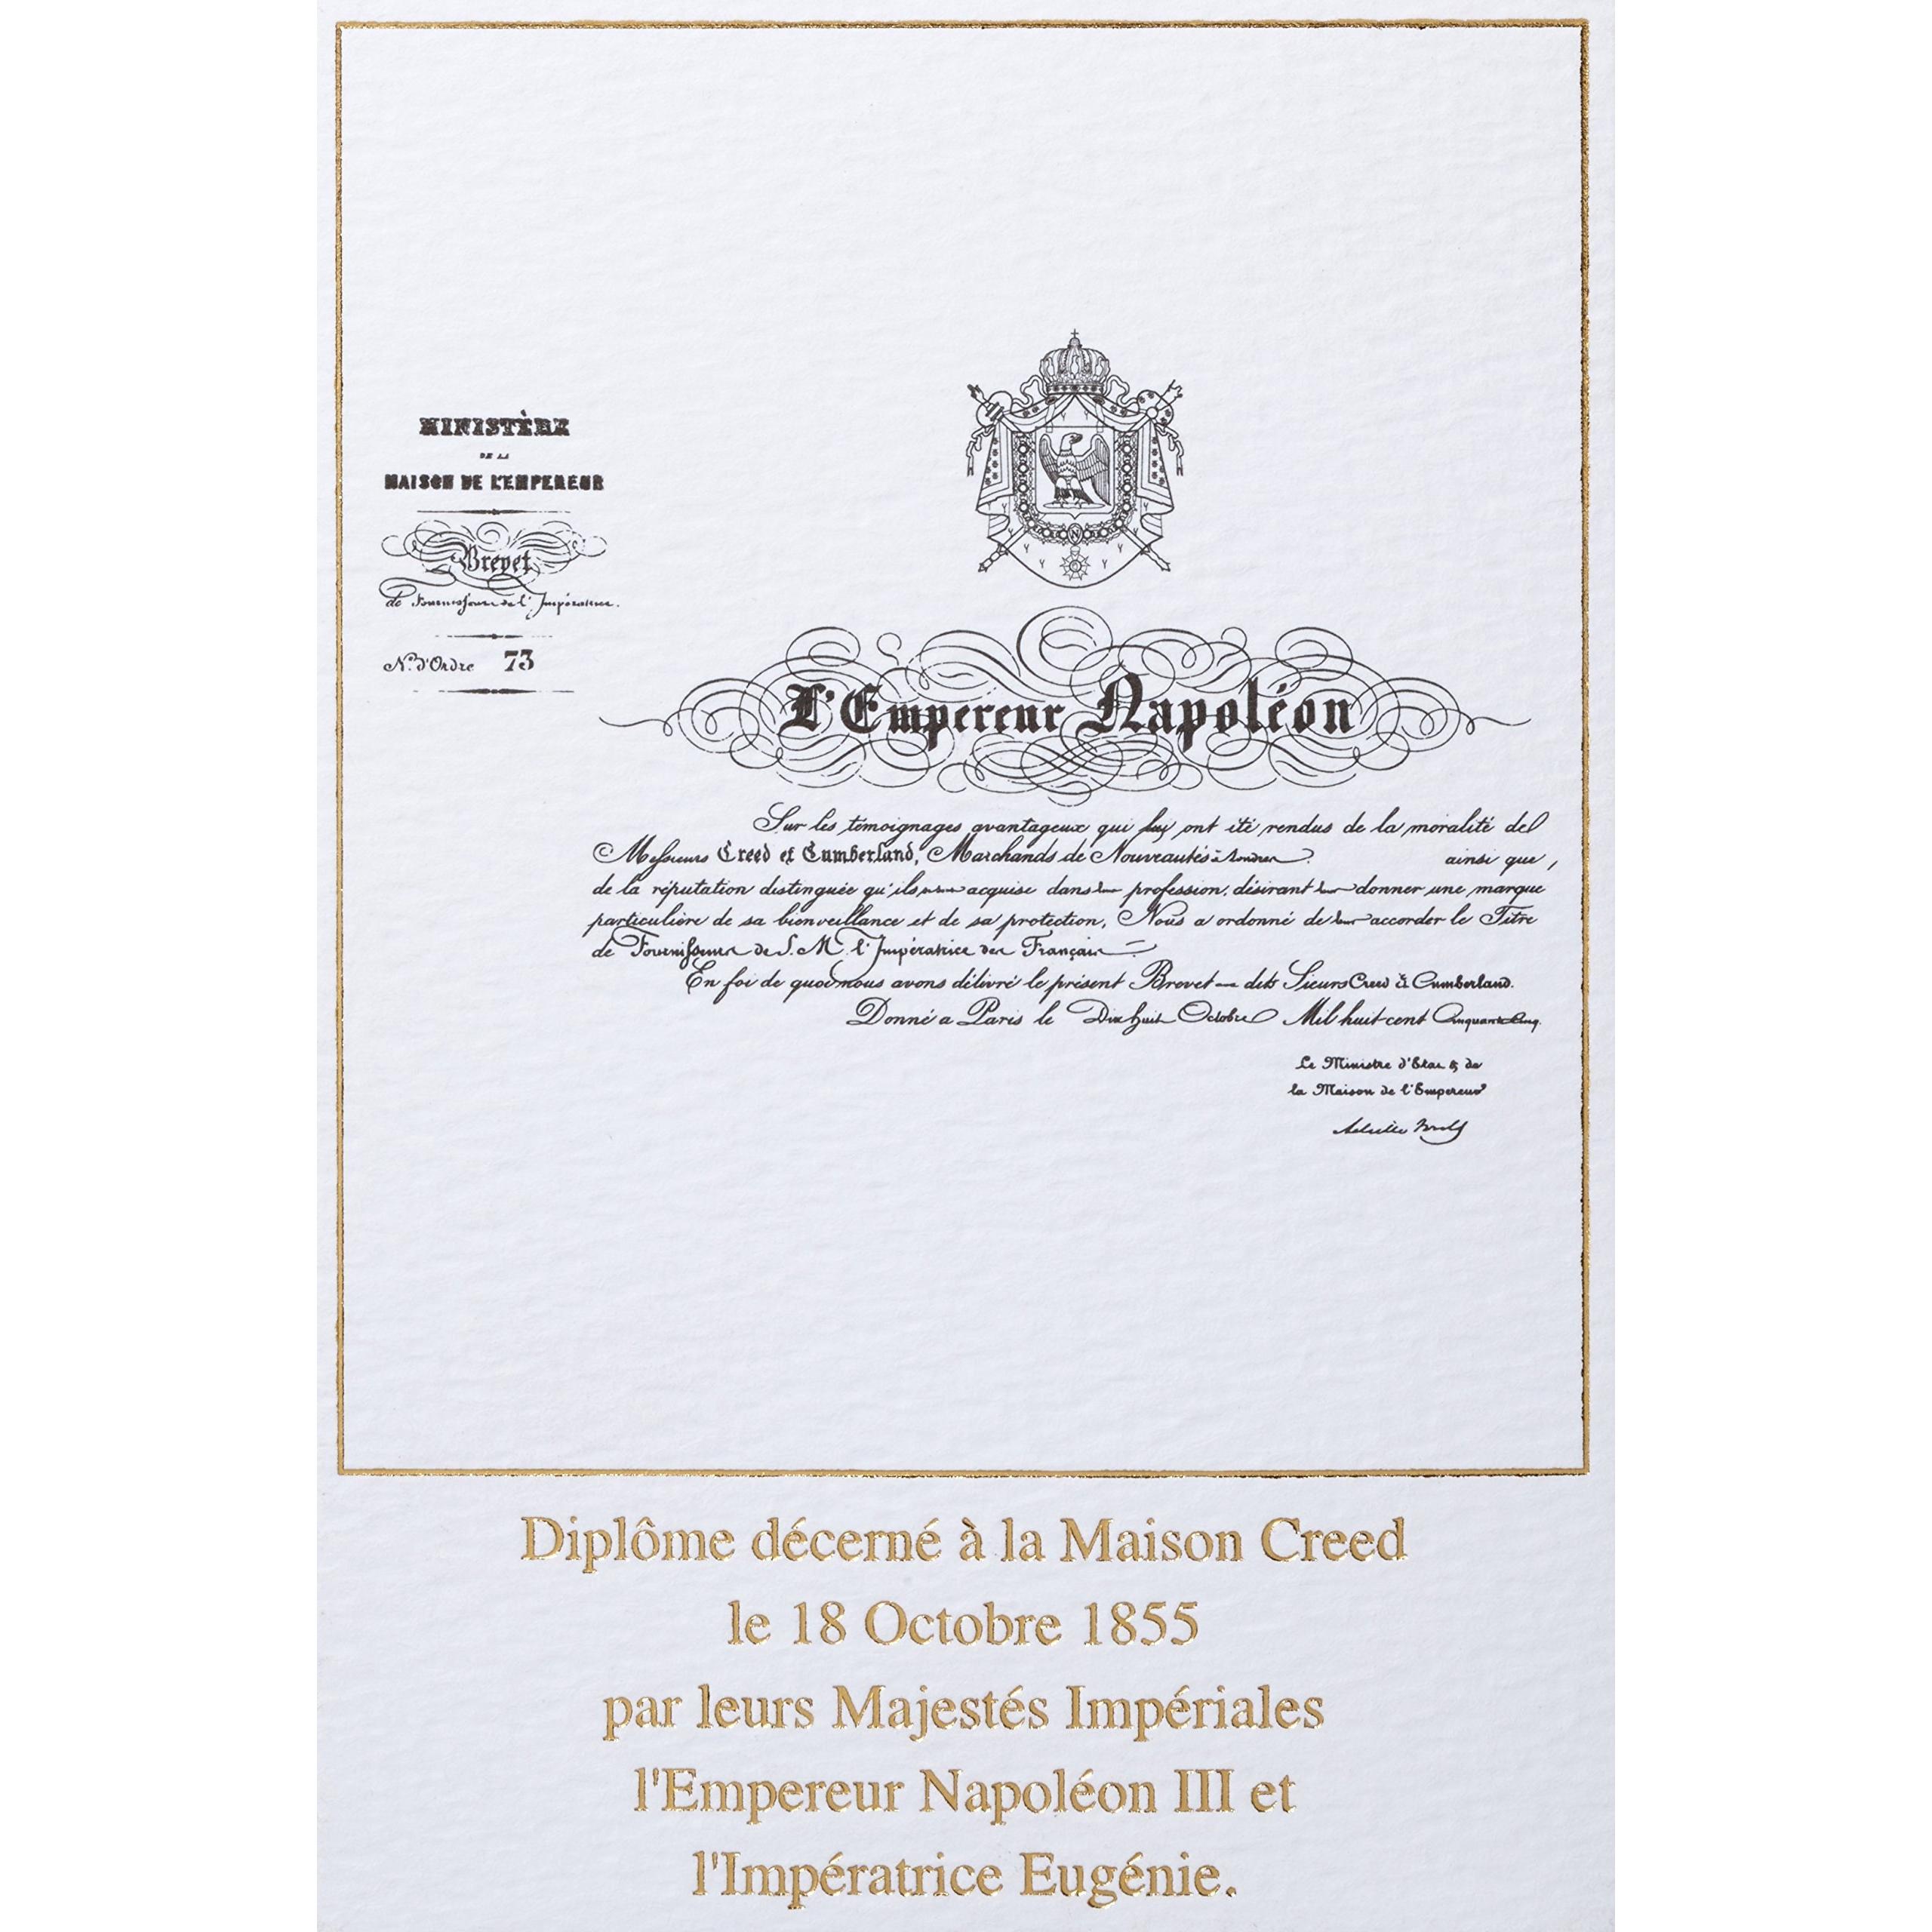 MINISTÈRE
DE LA
MAISON DE L'EMPEREUR
Brevet
de Fournisseur de l'Impératrice.
N.º d'Ordre 73
L'Empereur Napoléon
Sur les témoignages avantageux qui luy ont été rendus de la moralité de
Messieurs Creed et Cumberland, Marchands de Nouveautés à Londres ainsi que,
de la réputation distinguée qu'ils acquise dans leur profession, désirant leur donner une marque
particulière de sa bienveillance et de sa protection, Nous a ordonné de leur accorder le Titre
de Fournisseur de S. M. l'Impératrice des Français
En foi de quoi nous avons délivré le présent Brevet dits Sieurs Creed & Cumberland.
Donné a Paris le Dix huit Octobre Mil huit cent Cinquante Cinq.
Le Ministre d'Etat & de
la Maison de l'Empereur
Diplôme décerné à la Maison Creed
le 18 Octobre 1855
par leurs Majestés Impériales
l'Empereur Napoléon III et
l'Impératrice Eugénie.